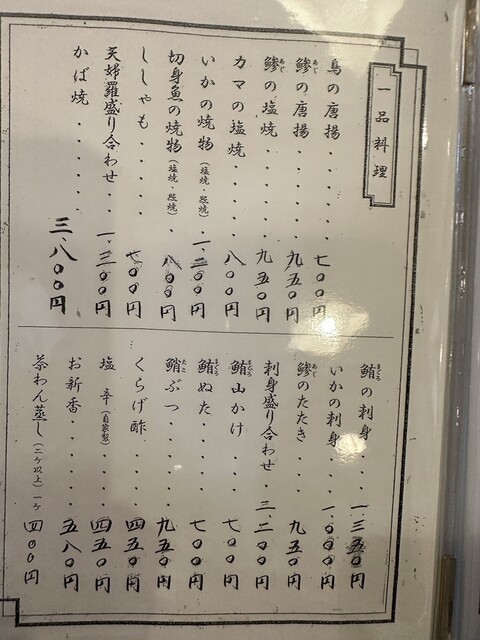 一品料理
鳥の唐揚........七〇〇円
鯵の唐揚........九五〇円
あじ
鯵の塩焼........九五〇円
あじ
カマの塩焼......八〇〇円
いかの焼物(塩焼・照焼)..一、二〇〇円
切身魚の焼物(塩焼・照焼).八〇〇円
ししゃも........七〇〇円
天婦羅盛り合わせ..一、二〇〇円
かば焼........三、八〇〇円
鮪の刺身......一、三五〇円
まぐろ
いかの刺身....一、〇〇〇円
鯵のたたき......九五〇円
あじ
刺身盛り合わせ..三、二〇〇円
鮪山かけ........七〇〇円
まぐろ
鮪ぬた..........七〇〇円
まぐろ
鮹ぶつ..........九五〇円
たこ
くらげ酢........四五〇円
塩辛(自家製)..四五〇円
お新香..........五八〇円
茶わん蒸し(二ケ以上)一ケ 四〇〇円